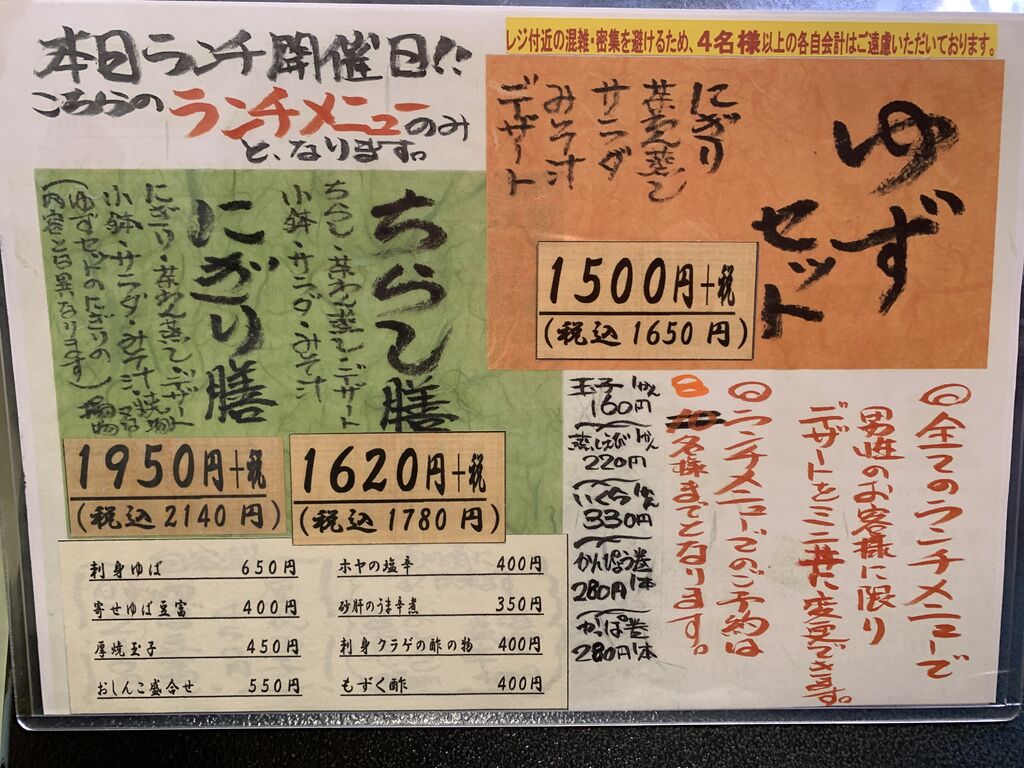 本日ランチ開催日!!
こちらのランチメニューのみ
と、なります。
レジ付近の混雑・密集を避けるため、4名様以上の各自会計はご遠慮いただいております。
ゆず
セット
にぎり
茶わん蒸し
サラダ
みそ汁
デザート
1500円+税
(税込1650円)
ちらし膳
ちらし・茶わん蒸し・デザート
小鉢・サラダ・みそ汁
1620円+税
(税込1780円)
にぎり膳
にぎり・茶わん蒸し・デザート
小鉢・サラダ・みそ汁・焼物又は揚物
(ゆずセットのにぎりの
内容と異なります)
1950円+税
(税込2140円)
◎全てのランチメニューで
男性のお客様に限り
デザートをミニ丼に変更できます。
◎ランチメニューでのご予約は
8
20名様までとなります。
玉子1かん
160円
蒸しえび1かん
220円
いくら1かん
330円
かんぴょう巻
280円1本
かっぱ巻
280円1本
刺身ゆば 650円
寄せゆば豆富 400円
厚焼玉子 450円
おしんこ盛合せ 550円
ホヤの塩辛 400円
砂肝のうま辛煮 350円
刺身クラゲの酢の物 400円
もずく酢 400円